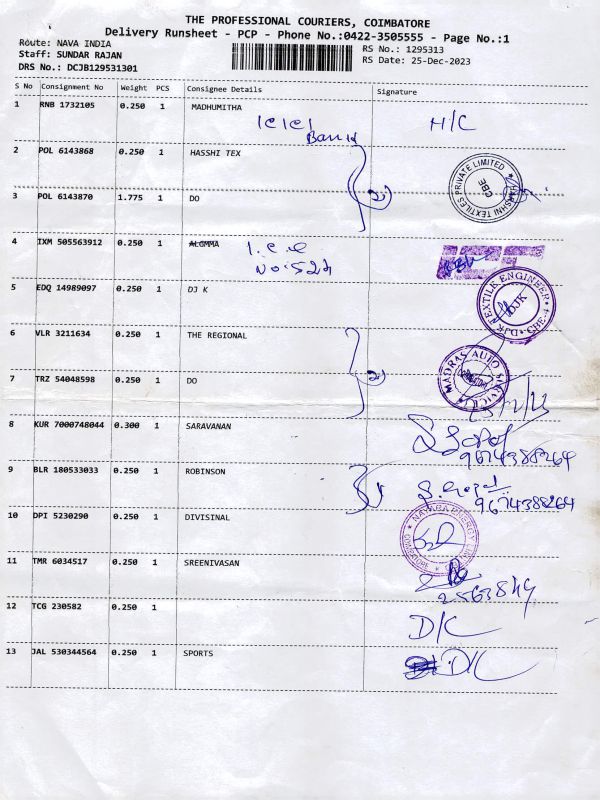 THE PROFESSIONAL COURIERS, COIMBATORE
Delivery Runsheet - PCP - Phone No.:0422-3505555 - Page No.:1
Route: NAVA INDIA
RS No.: 1295313
Staff: SUNDAR RAJAN
RS Date: 25-Dec-2023
DRS No.: DCJB129531301
S No Consignment No Weight PCS Consignee Details Signature
1 RNB 1732105 0.250 1 MADHUMITHA
ICICI Bank
H/C
2 POL 6143868 0.250 1 HASSHI TEX
PRIVATE LIMITED
CBE
3 POL 6143870 1.775 1 DO
4 IXM 505563912 0.250 1 ALGMMA
5 EDQ 14989097 0.250 1 DJ K
TEXTILE ENGINEER
DJK
6 VLR 3211634 0.250 1 THE REGIONAL
7 TRZ 54048598 0.250 1 DO
MADRAS AUTO SERVICE
8 KUR 7000748044 0.300 1 SARAVANAN
9674388264
9 BLR 180533033 0.250 1 ROBINSON
9674388264
10 DPI 5230290 0.250 1 DIVISINAL
11 TMR 6034517 0.250 1 SREENIVASAN
12 TCG 230582 0.250 1
D/C
13 JAL 530344564 0.250 1 SPORTS
D/C